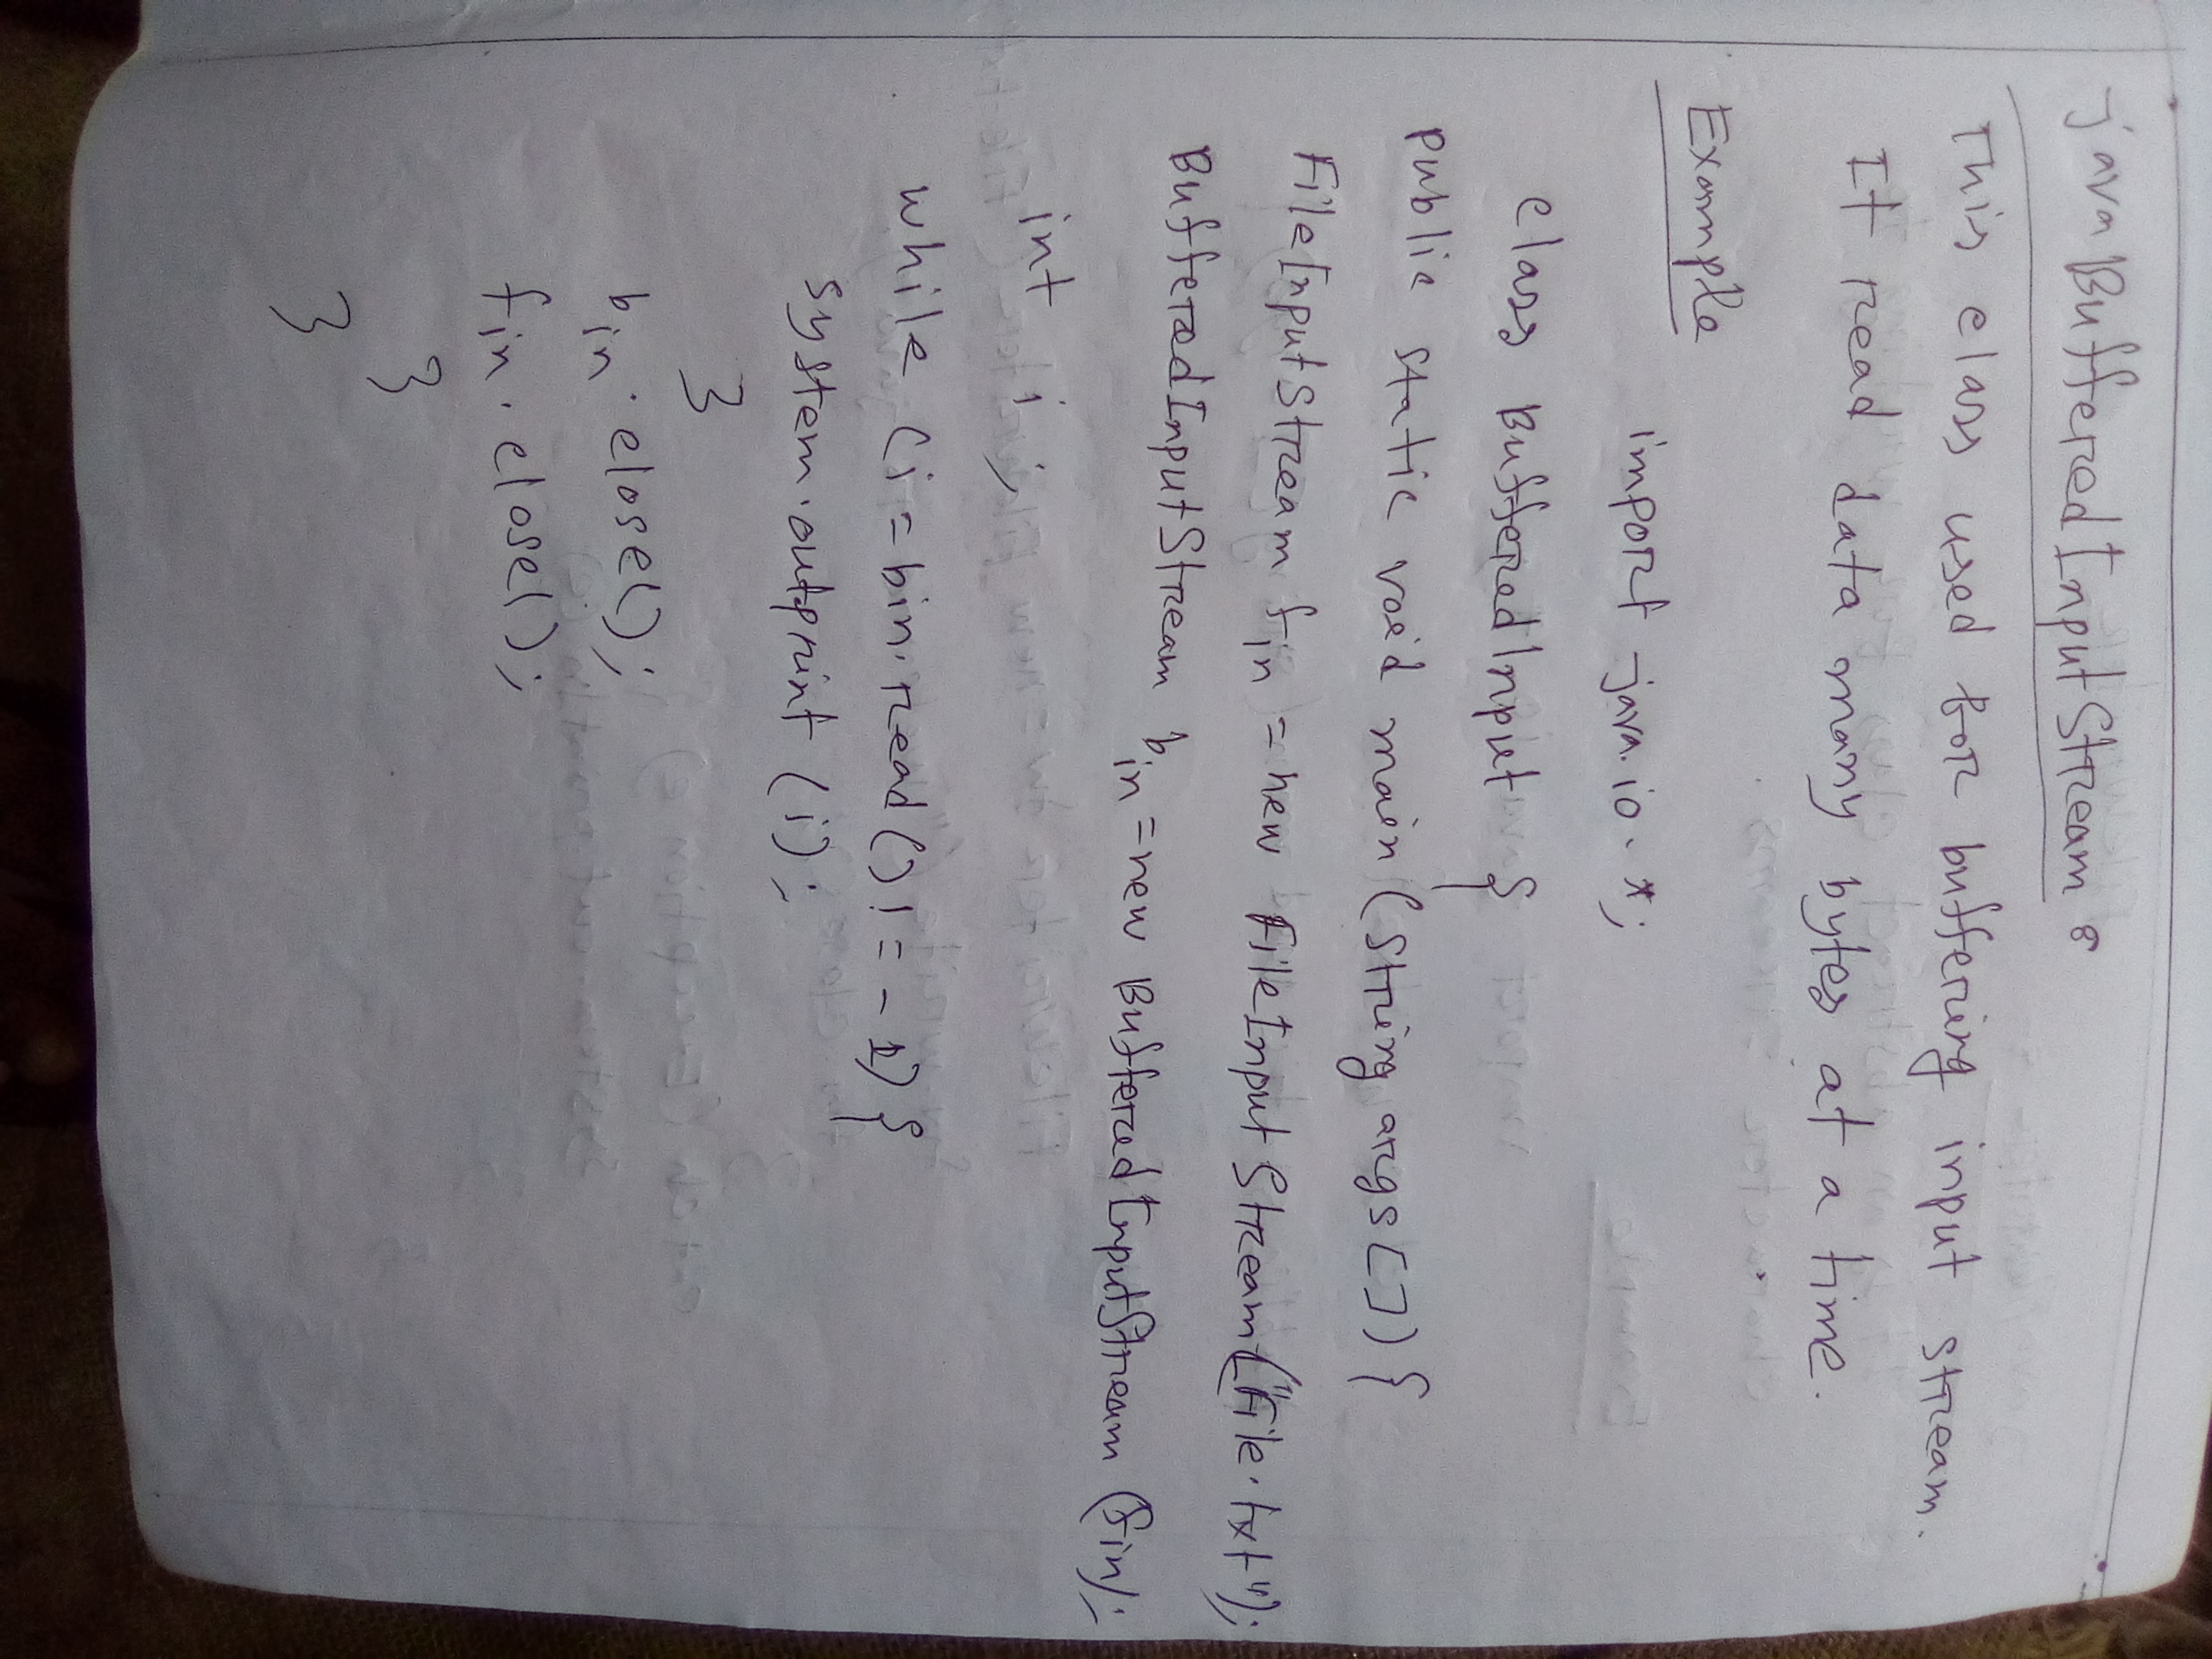 java BufferedInputStream :
This class used for buffering input stream.
It read data many bytes at a time.
Example
import java.io.*;
class BufferedInput {
public static void main (String args []) {
FileInputStream fin = new FileInputStream ("File.txt");
BufferedInputStream bin = new BufferedInputStream (fin);
int i ;
while (i = bin.read () != -1) {
system.out.print (i);
}
bin.close();
fin.close();
}
}